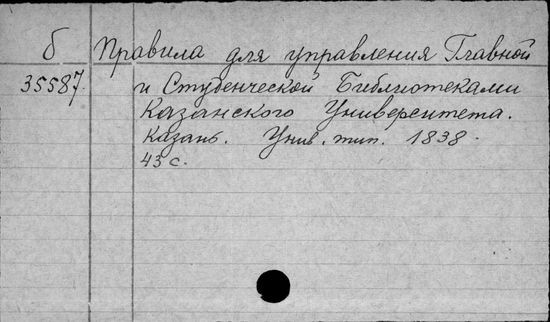 б Правила для управления Главной
35587. и Студенческой Библиотеками
Казанского Университета.
Казань. Унив. тип. 1838.
43 с.